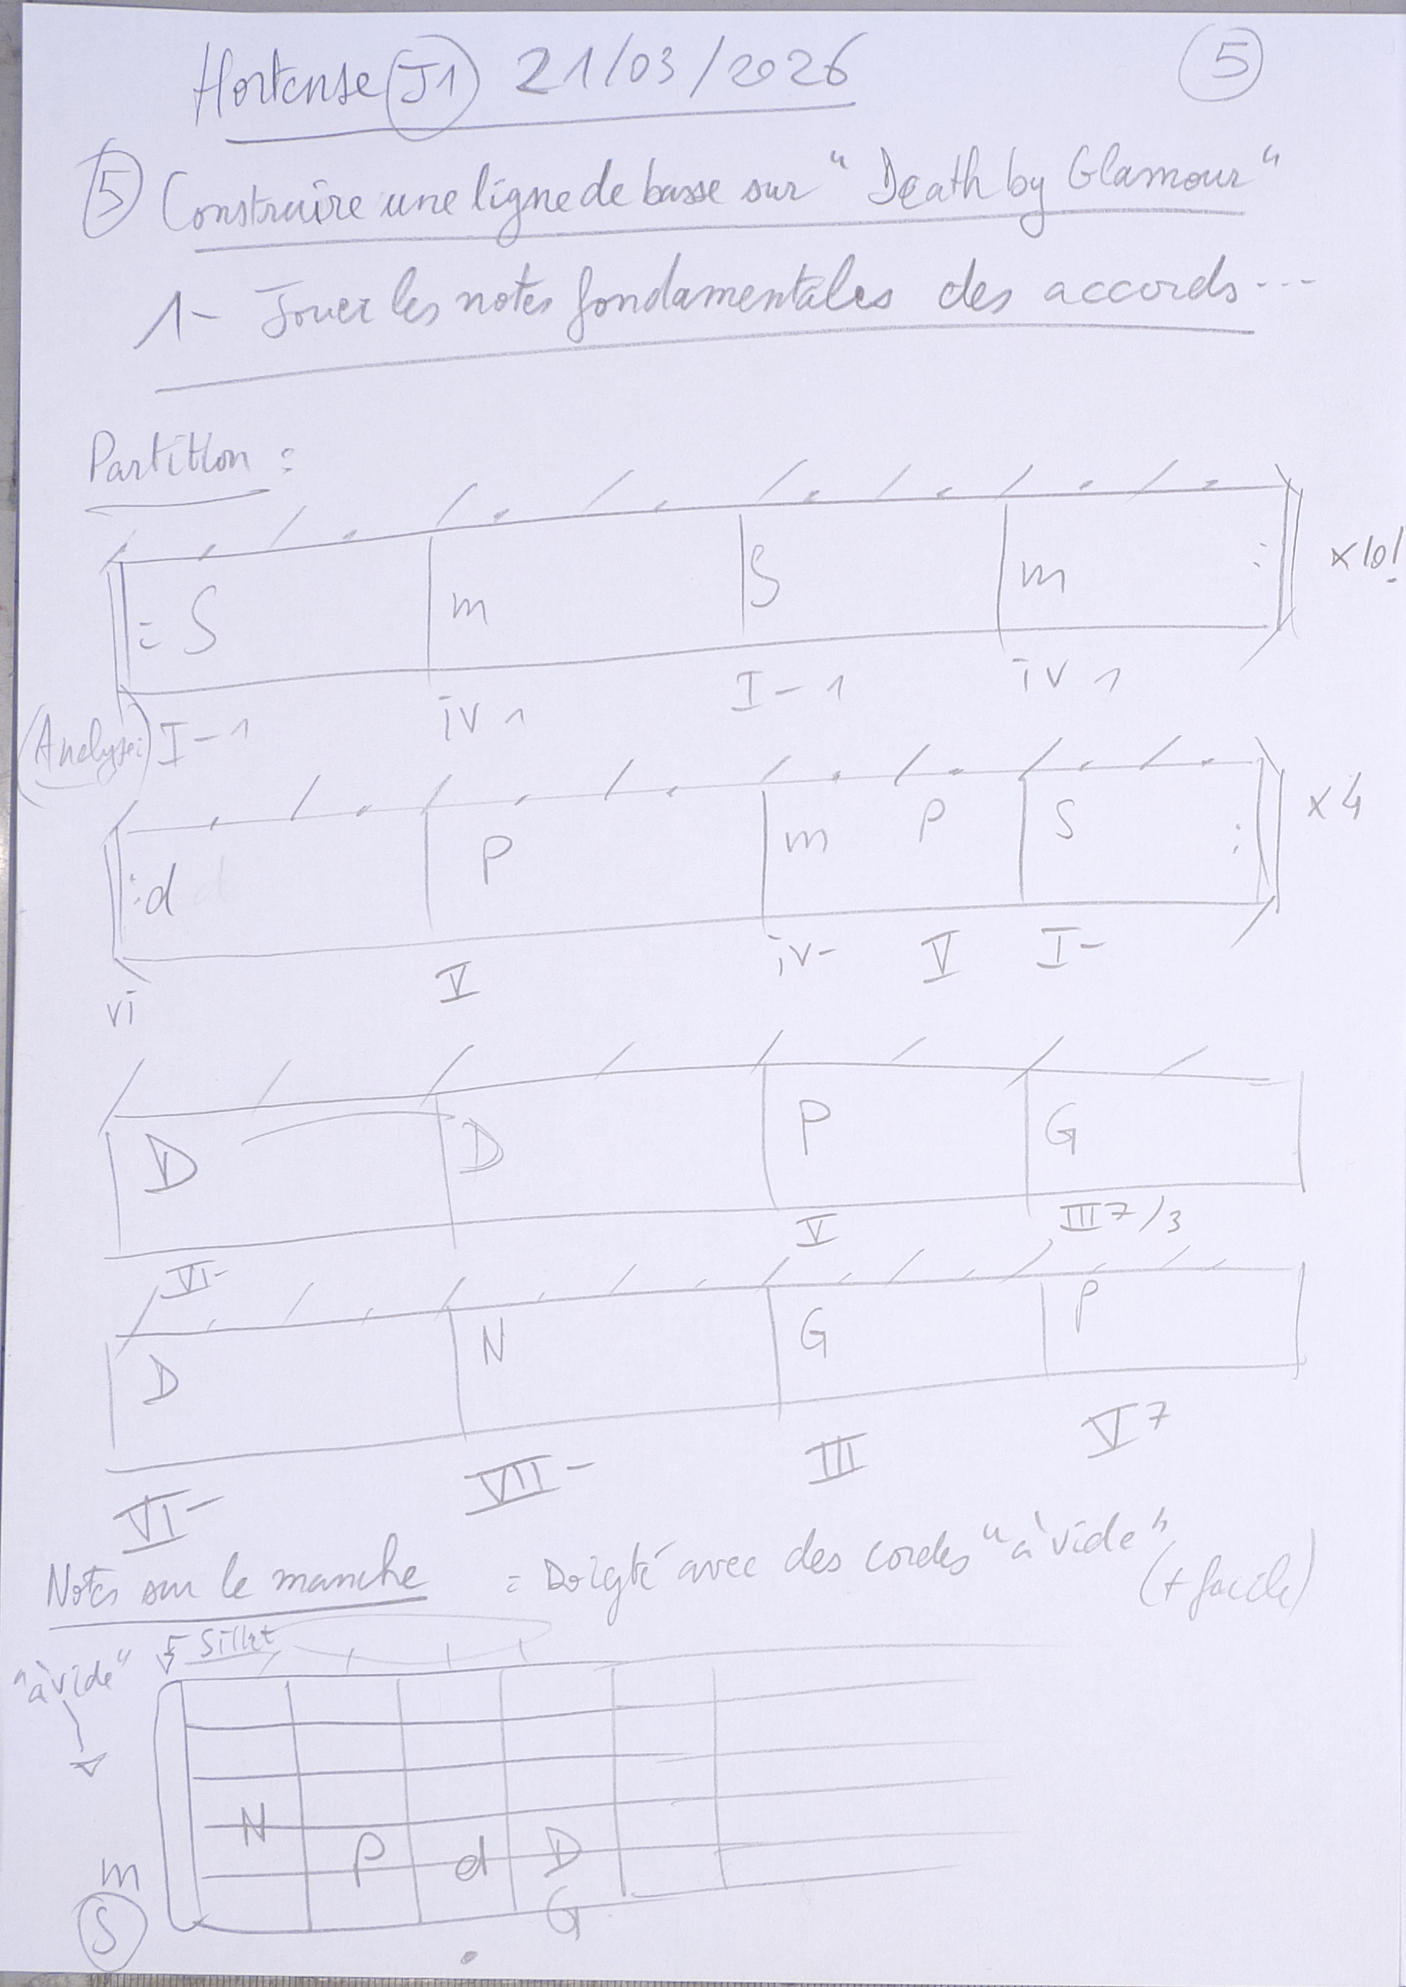 Hortense J1 21/03/2026 5
5 Construire une ligne de basse sur "Death by Glamour"
1- Jouer les notes fondamentales des accords...
Partition :
: S m S m : x10!
(Analyse:) I-1 iv 1 I-1 iv 1
: d P m P S : x4
vi V iv- V I-
D D P G
VI- V III7/3
D N G P
VI- VII- III V7
Notes sur le manche = Doigté avec des cordes "à vide"
(+ facile)
"à vide" Sillet
N
m P d D
S G